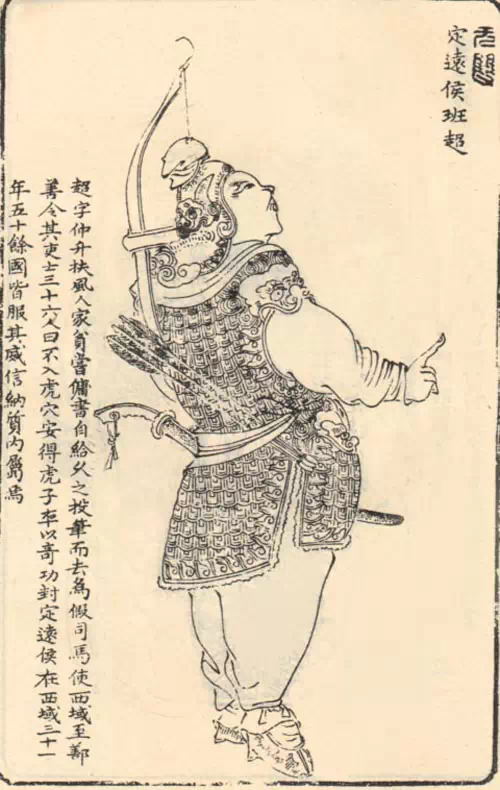 定遠侯班超
超字仲升扶風人家貧嘗傭書自給久之投筆而去為假司馬使西域至鄯
善令其吏士三十六人曰不入虎穴安得虎子卒以奇功封定遠侯在西域三十一
年五十餘國皆服其威信納質內屬焉